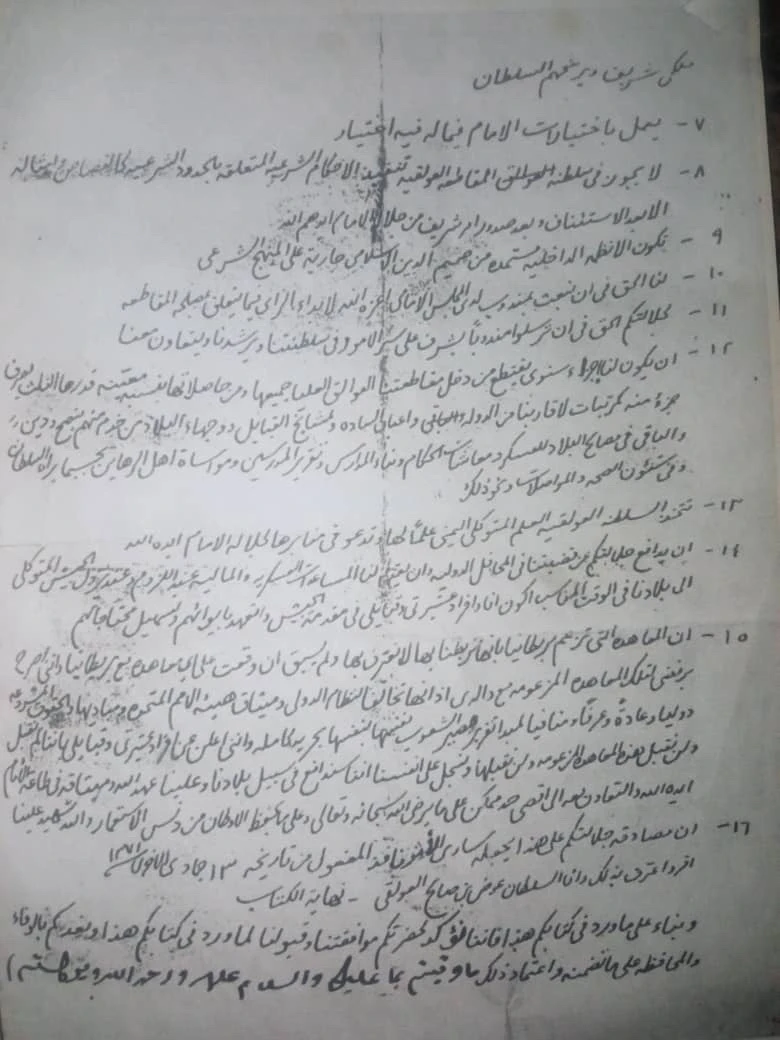 ملكي شريف ويرضيهم السلطان
٧- يعمل باختيارات الامام فيما له فيه اختيار
٨- لا يجوز في سلطنة العوالق المقاطعه العولقيه تنفيذ الاحكام الشرعيه المتعلقه بالحدود الشرعيه كالقصاص وامثاله
الا بعد الاستئناف وبعد صدور امر شريف من جلالة الامام ايدهم الله
٩- تكون الانظمه الداخليه مستمده من صميم الدين الاسلامي جارية على المنهج الشرعي
١٠- لنا الحق في ان نبعث بمندوب لدى المجلس الامامي اعزه الله لابداء الراي بما يتعلق بصلحة المقاطعه
١١- لجلالتكم الحق في ان ترسلوا مندوباً يشرف على سير الامور في سلطنتنا ويرشدنا ويتعاون معنا
١٢- ان يكون لنا اجراء سنوي يقتطع من دخل مقاطعتنا العوالق العليا جميعها ومن حاصلاتها نسبة معينه قدرها الثلث يصرف
جزء منه كمرتبات لاقاربنا من الدوله واعيان الساده ومشايخ القبايل ووجهاء البلاد من خدم منهم بنصح ودين
والباقي في مصالح البلاد للعسكر ومعاشات الحكام وبناء المدارس وتقرير المدرسين ومواساة اهل الرهاين بحسبما يراه السلطان
وفي شئون الصحه والمواصلات ونحو ذلك
١٣- تتخذ السلطنه العولقيه العلم المتوكلي اليمني علماً لها وتدعو في منابرها لجلالة الامام ايده الله
١٤- ان يدافع جلالتكم عن قضيتنا في المحافل الدوليه وان يعطينا لنا المساعدات العسكريه والماليه عند اللزوم وعند دخول الجيش المتوكلي
الى بلادنا في الوقت المناسب اكون انا وافراد عشيرتي وقبايلي في مقدمة الجيش والتعهد بايوائهم وتسهيل محتاجاتهم
١٥- ان المعاهده التي تزعم بريطانيا بانها تربطنا بها لا نعترف بها ولم يسبق ان وقعت على اي معاهده مع بريطانيا واني اصرح
برفضي لتلك المعاهده المزعومه مع والدي اذ انها تخالف النظام الدولي وميثاق هيئة الامم المتحده ومبادئها والحقوق المشروعه
دوليا وعادةً وعرفاً ومنافيا لمبدا تقرير مصير الشعوب بنفسها بحريه كامله وانني اعلن عن افراد عشيرتي وقبايلي باننا لم نقبل
ولن نقبل هذه المعاهده المزعومه ولن نقبلها ونسجل على انفسنا اننا سندافع في سبيل بلادنا وعلينا عهد الله وميثاقه في طاعة الامام
ايده الله والتعاون معه الى اقصى حد ممكن على ما يرضي الله سبحانه وتعالى وعلى ما يحفظ الاوطان من دنس الاستعمار والله شهيد علينا
١٦- ان مصادقة جلالتكم على هذا يجعله ساري نافذ المفعول من تاريخه ١٣ جمادى الاخرى سنة ١٣٧١
اقر واعترف بذلك وانا السلطان عوض بن صالح العولقي - نهاية الكتاب
وبناء على ما ورد في كتابكم هذا فاننا نؤكد لحضرتكم موافقتنا وقبولنا لما ورد في كتابكم هذا ونعدكم بالوفاء
والمحافظه على ما تضمنه واعتماد ذلك ما وفيتم بما عليكم والسلام عليكم ورحمة الله وبركاته )